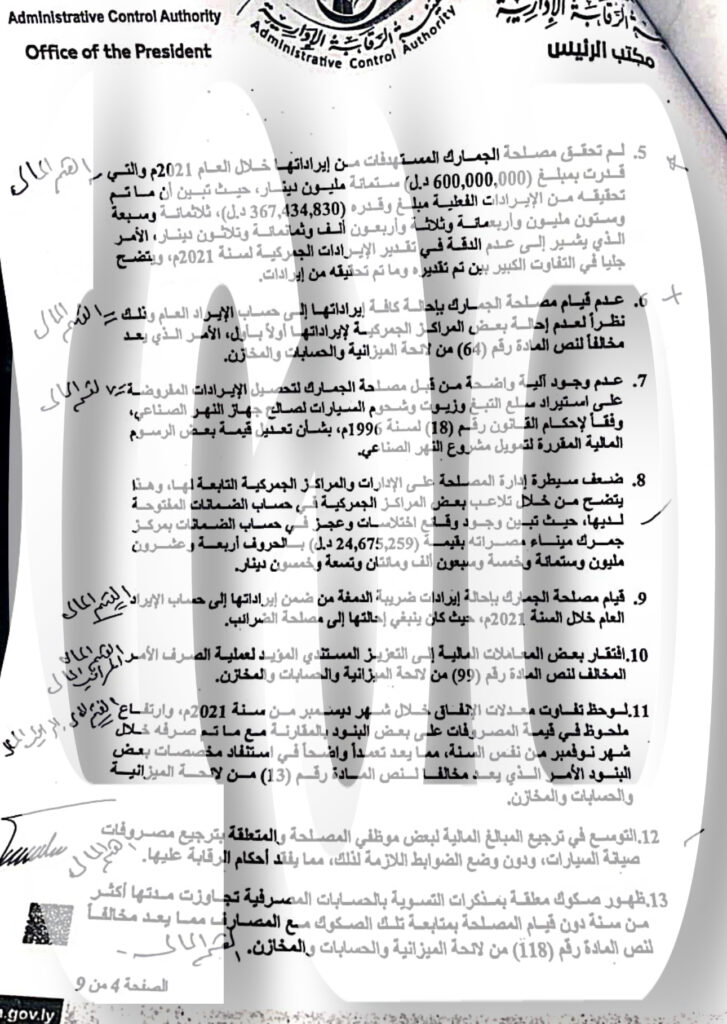 Administrative Control Authority
Office of the President
الرقابة الإدارية
Administrative Control Authority
مكتب الرئيس
5. لم تحقق مصلحة الجمارك المستهدفات من إيراداتها خلال العام 2021م والتي
قدرت بمبلغ (600,000,000 د.ل) ستمائة مليون دينار، حيث تبين أن ما تم
تحقيقه من الإيرادات الفعلية مبلغ وقدره (367,434,830 د.ل)، ثلاثمائة وسبعة
وستون مليون وأربعمائة وثلاثة وأربعون ألف وثمانمائة وثلاثون دينار، الأمر
الذي يشير إلى عدم الدقة في تقدير الإيرادات الجمركية لسنة 2021م، ويتضح
جليا في التفاوت الكبير بين تم تقديره وما تم تحقيقه من إيرادات.
6. عدم قيام مصلحة الجمارك بإحالة كافة إيراداتها إلى حساب الإيراد العام وذلك
نظراً لعدم إحالة بعض المراكز الجمركية لإيراداتها أولاً بأول، الأمر الذي يعد
مخالفاً لنص المادة رقم (64) من لائحة الميزانية والحسابات والمخازن.
7. عدم وجود آلية واضحة من قبل مصلحة الجمارك لتحصيل الإيرادات المفروضة
على استيراد سلع التبغ وزيوت وشحوم السيارات لصالح جهاز النهر الصناعي،
وفقاً لإحكام القانون رقم (18) لسنة 1996م، بشأن تعديل قيمة بعض الرسوم
المالية المقررة لتمويل مشروع النهر الصناعي.
8. ضعف سيطرة إدارة المصلحة على الإدارات والمراكز الجمركية التابعة لها، وهذا
يتضح من خلال تلاعب بعض المراكز الجمركية في حساب الضمانات المفتوحة
لديها، حيث تبين وجود وقائع اختلاسات وعجز في حساب الضمانات بمركز
جمرك ميناء مصراته بقيمة (24,675,259 د.ل) بالحروف أربعة وعشرون
مليون وستمائة وخمسة وسبعون ألف ومائتان وتسعة وخمسون دينار.
9. قيام مصلحة الجمارك بإحالة إيرادات ضريبة الدمغة من ضمن إيراداتها إلى حساب الإيراد
العام خلال السنة 2021م، حيث كان ينبغي إحالتها إلى مصلحة الضرائب.
10. افتقار بعض المعاملات المالية إلى التعزيز المستندي المؤيد لعملية الصرف الأمر
المخالف لنص المادة رقم (99) من لائحة الميزانية والحسابات والمخازن.
11. لوحظ تفاوت معدلات الإنفاق خلال شهر ديسمبر من سنة 2021م، وارتفاع
ملحوظ في قيمة المصروفات على بعض البنود بالمقارنة مع ما تم صرفه خلال
شهر نوفمبر من نفس السنة، مما يعد تعمداً واضحاً في استنفاد مخصصات بعض
البنود الأمر الذي يعد مخالفا لنص المادة رقم (13) من لائحة الميزانية
والحسابات والمخازن.
12. التوسع في ترجيع المبالغ المالية لبعض موظفي المصلحة والمتعلقة بترجيع مصروفات
صيانة السيارات، ودون وضع الضوابط اللازمة لذلك، مما يفقد أحكام الرقابة عليها.
13. ظهور صكوك معلقة بمذكرات التسوية بالحسابات المصرفية تجاوزت مدتها أكثر
من سنة دون قيام المصلحة بمتابعة تلك الصكوك مع المصارف مما يعد مخالفاً
لنص المادة رقم (118) من لائحة الميزانية والحسابات والمخازن.
الصفحة 4 من 9
.gov.ly